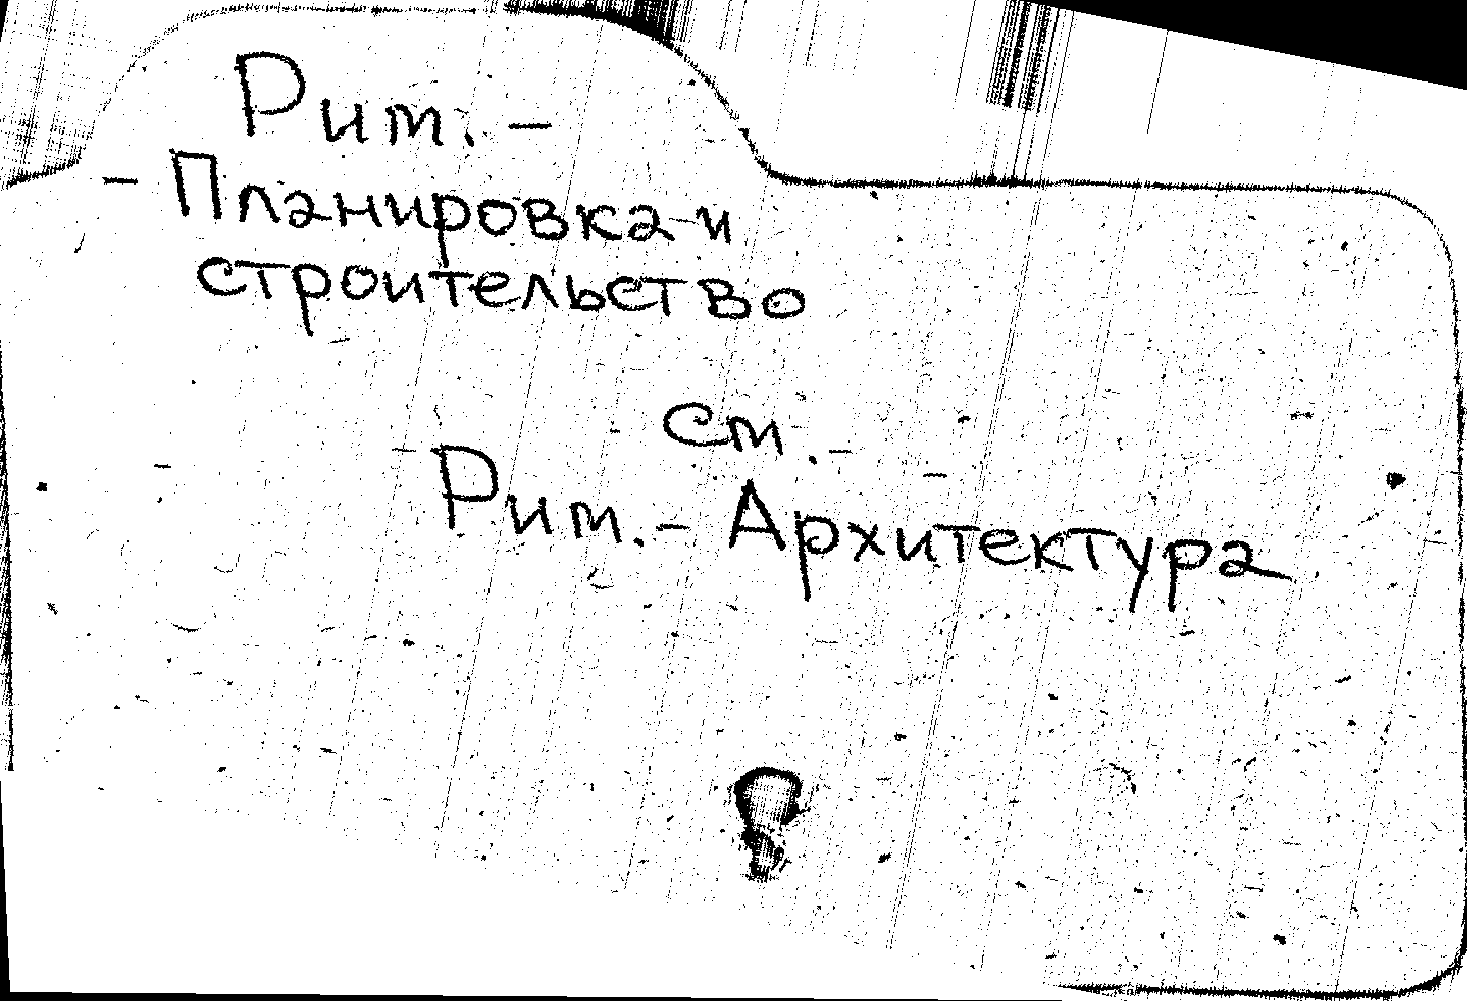 Рит. -
- Планировка и
строительство
см. -
Рит. - Архитектура